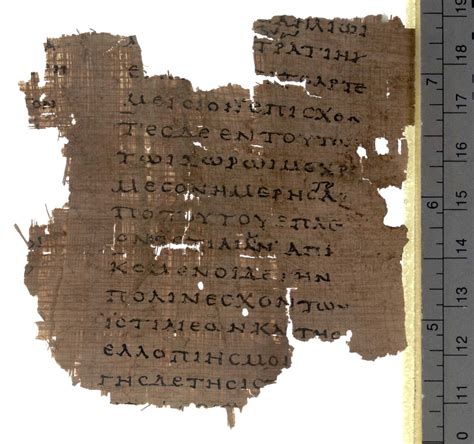 ΑΗΛΙΩΙ
ΤΡΑΤΙΗ
ΑΡΤΕ
ΜΕΙϹΙΟΝΕΠΙϹΧΟΝ
ΤΕϹΔΕΕΝΤΟΥΤΩ
ΤΩΙΧΩΡΩΙΜΕΧΡΙ
ΜΕϹΟΝΗΜΕΡΗϹΑ
ΠΟΤΟΥΤΟΥΕΠΛΕ
ΟΝ ΙΑΙΗΝΑΠΙ
ΚΟΜΕΝΟΙΔΕΤΗΝ
ΠΟΛΙΝΕϹΧΟΝΤΩΝ
ΙϹΤΙΑΙΕΩΝΚΑΙΤΗϹ
ΕΛΛΟΠΙΗϹΜΟΙ
ΓΗϹΔΕΤΗϹΙϹ